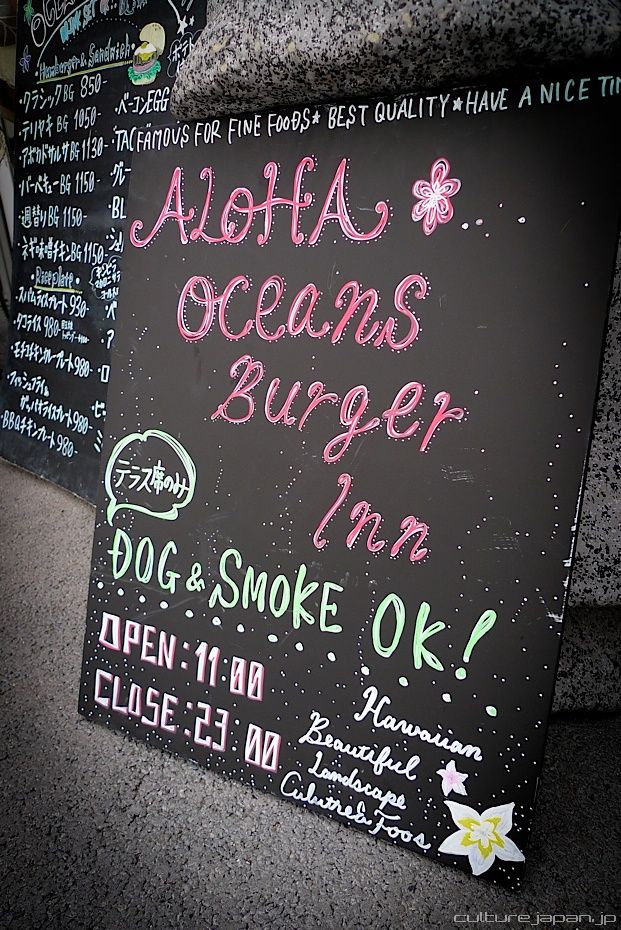 Hamburger & Sandwich
・クラシックBG 850-
・テリヤキBG 1050-
・アボカドサルサBG 1130-
・バーベキューBG 1150-
・週替りBG 1150-
・ネギ味噌チキンBG 1150-
・Riceplate・
・スパムライスプレート 930-
・タコライス 980-
・モチコチキンカレープレート 980-
・BBQチキンプレート 980-
・ベーコンEGG
FAMOUS FOR FINE FOODS★ BEST QUALITY★HAVE A NICE TIM
ALOHA
OCEANS
BURGER
Inn
テラス席のみ
DOG & SMOKE OK!
OPEN:11:00
CLOSE:23:00
Hawaiian
Beautiful
Landscape
Culutre & Foos
culturejapan.jp